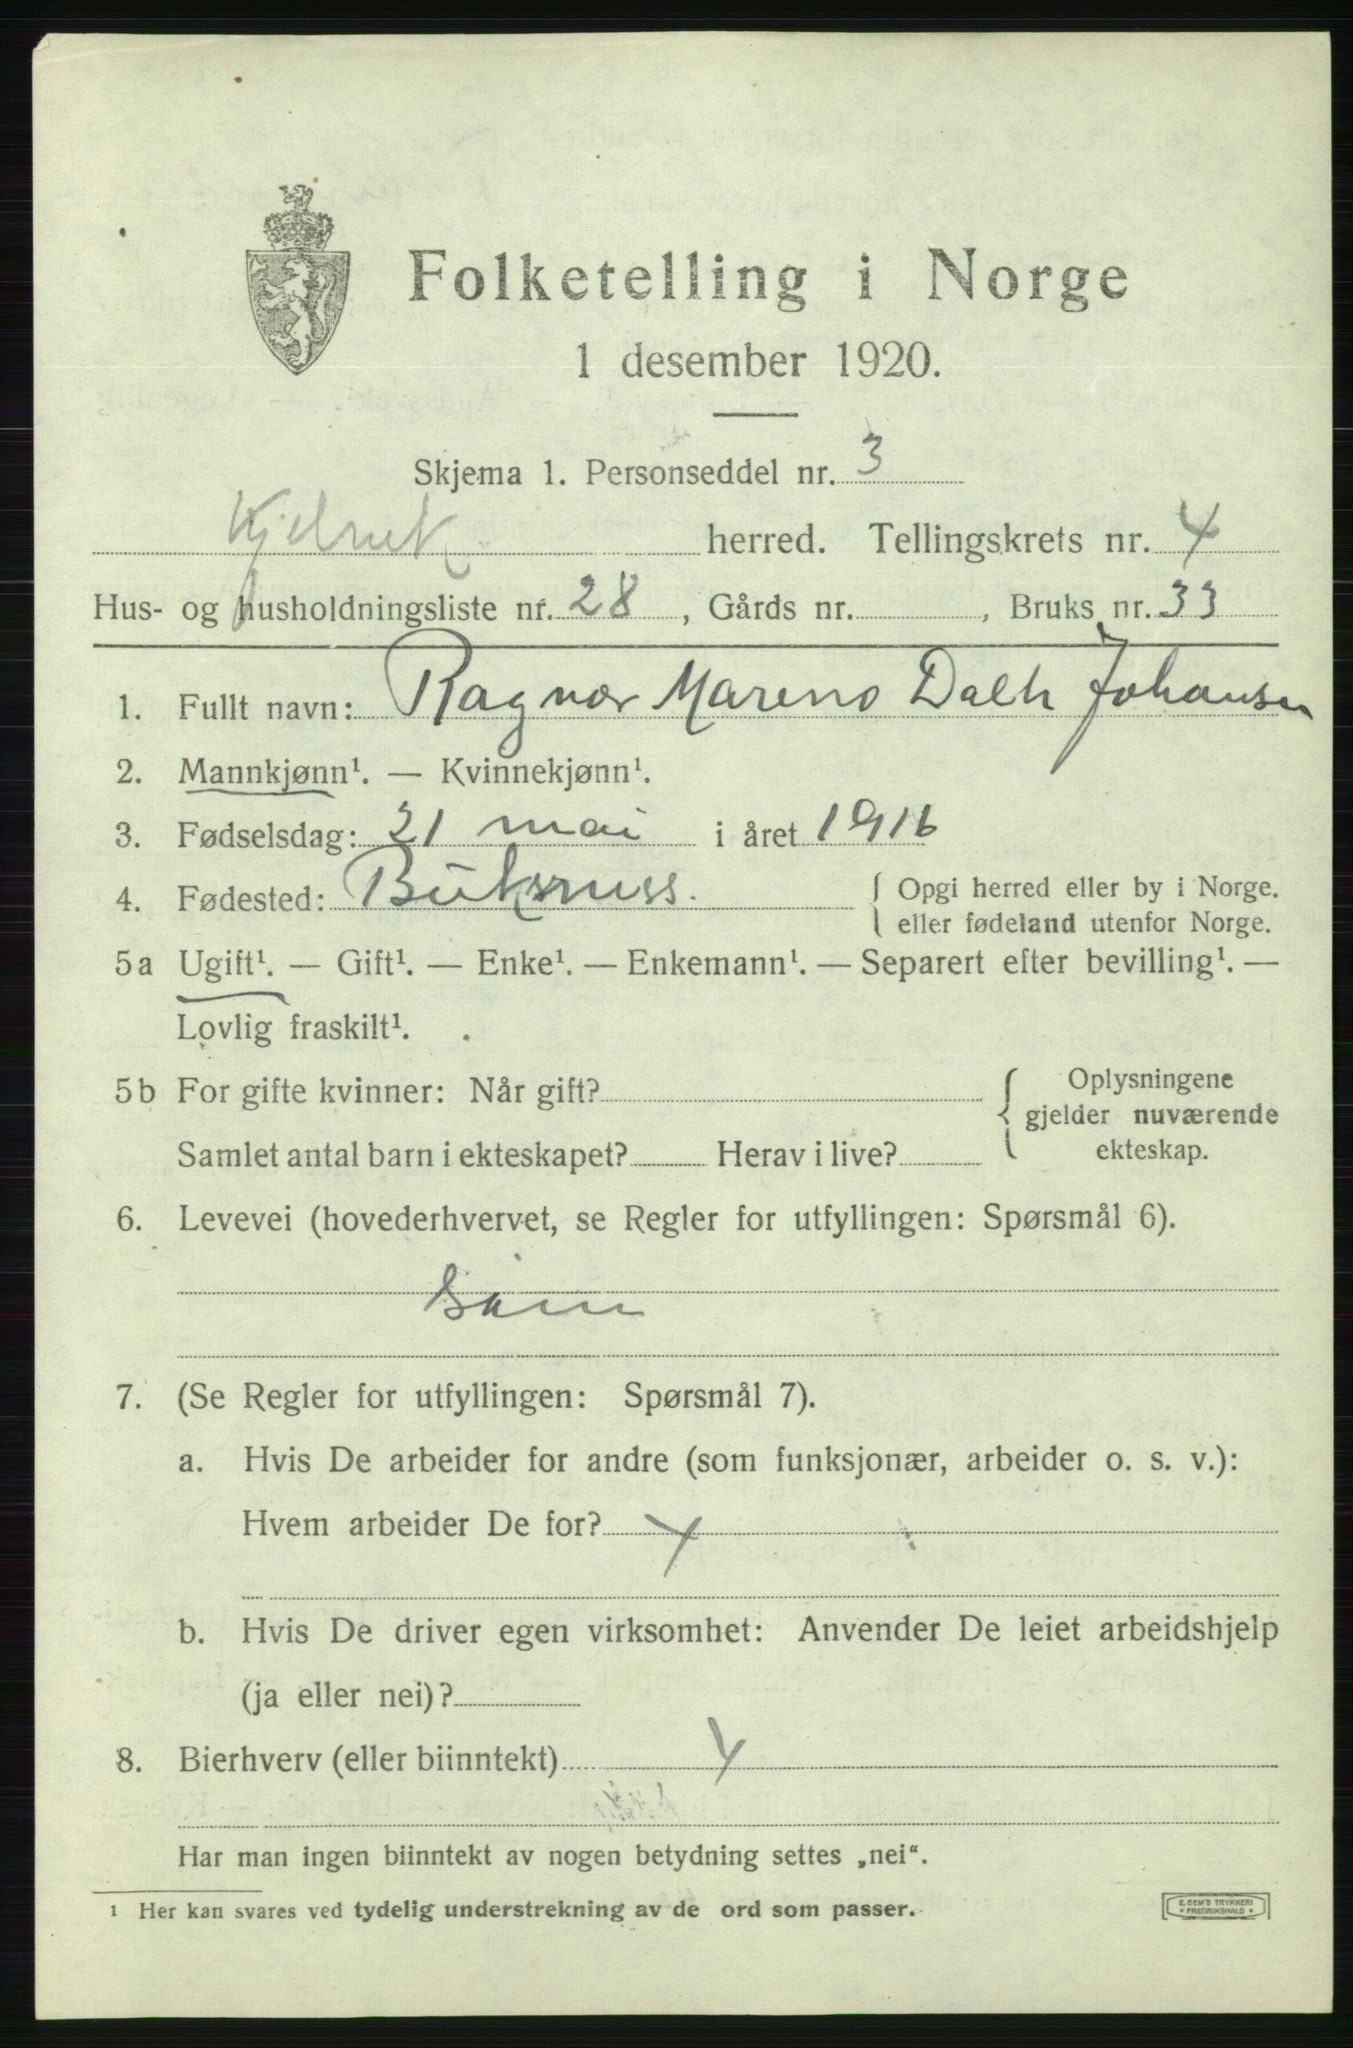 Folketelling i Norge
1 desember 1920.
Skjema 1. Personseddel nr. 3
herred. Tellingskrets nr. 4
Hus- og husholdningsliste nr. 28, Gårds nr. , Bruks nr. 33
1. Fullt navn: Ragnar Mareno Dalh Johansen
2. Mannkjønn¹. — Kvinnekjønn¹.
3. Fødselsdag: 21 mai i året 1916
4. Fødested: Buksness. { Opgi herred eller by i Norge.
{ eller fødeland utenfor Norge.
5a Ugift¹. — Gift¹. — Enke¹. — Enkemann¹. — Separert efter bevilling¹. —
Lovlig fraskilt¹.
5b For gifte kvinner: Når gift? { Oplysningene
gjelder nuværende
Samlet antal barn i ekteskapet? Herav i live? ekteskap.
6. Levevei (hovederhvervet, se Regler for utfyllingen: Spørsmål 6).
Sönn
7. (Se Regler for utfyllingen: Spørsmål 7).
a. Hvis De arbeider for andre (som funksjonær, arbeider o. s. v.):
Hvem arbeider De for?
b. Hvis De driver egen virksomhet: Anvender De leiet arbeidshjelp
(ja eller nei)?
8. Bierhverv (eller biinntekt)
Har man ingen biinntekt av nogen betydning settes „nei“.
1 Her kan svares ved tydelig understrekning av de ord som passer.
E. SEM'S TRYKKERI
* FREDRIKSHALD *